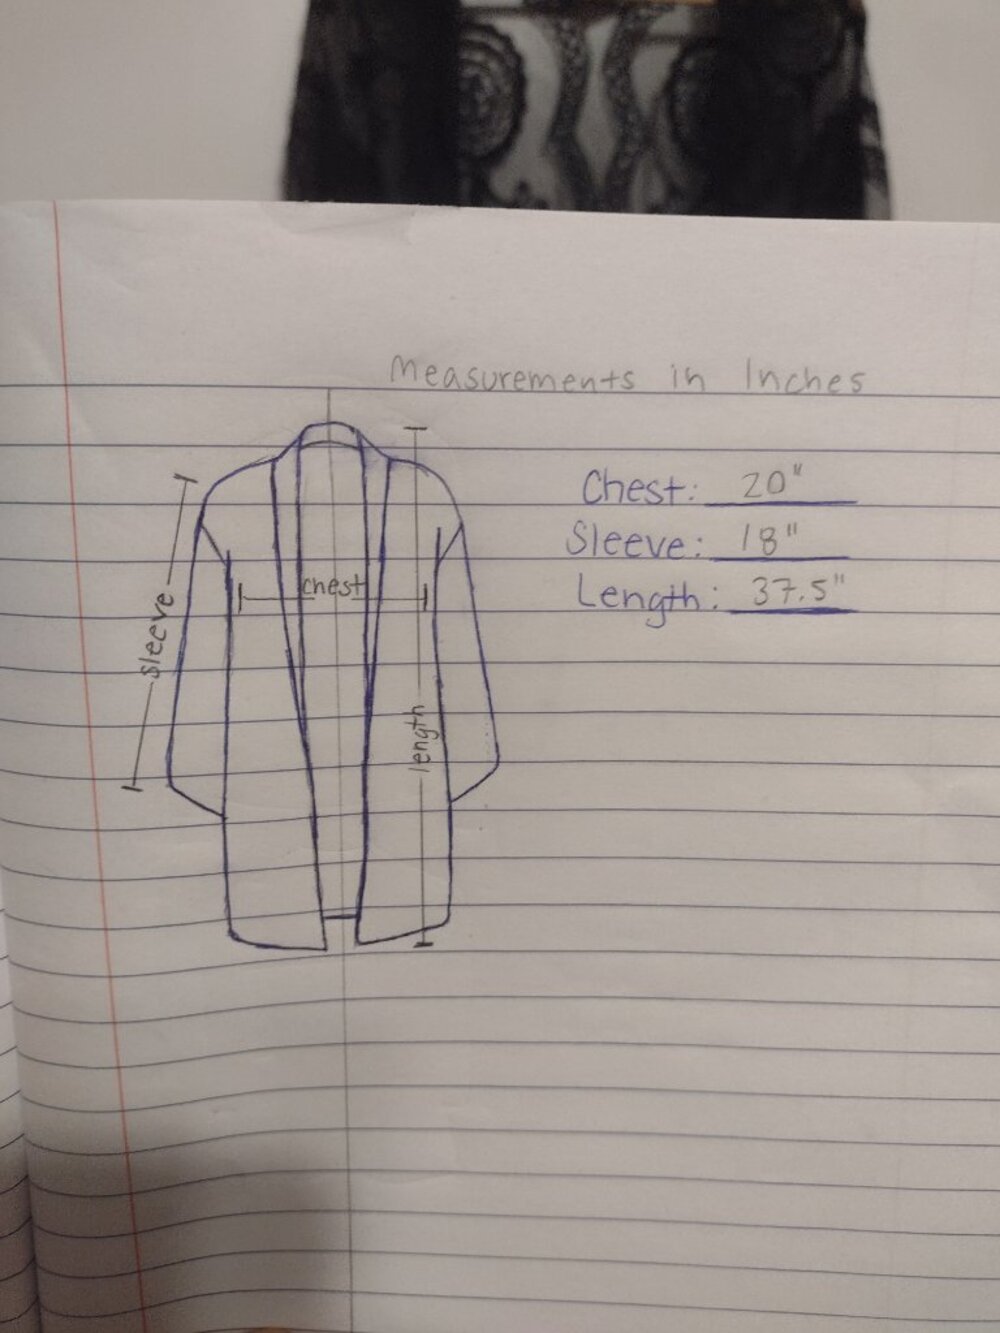 Measurements in Inches
Chest: 20"
Sleeve: 18"
Length: 37.5"
chest
sleeve
length